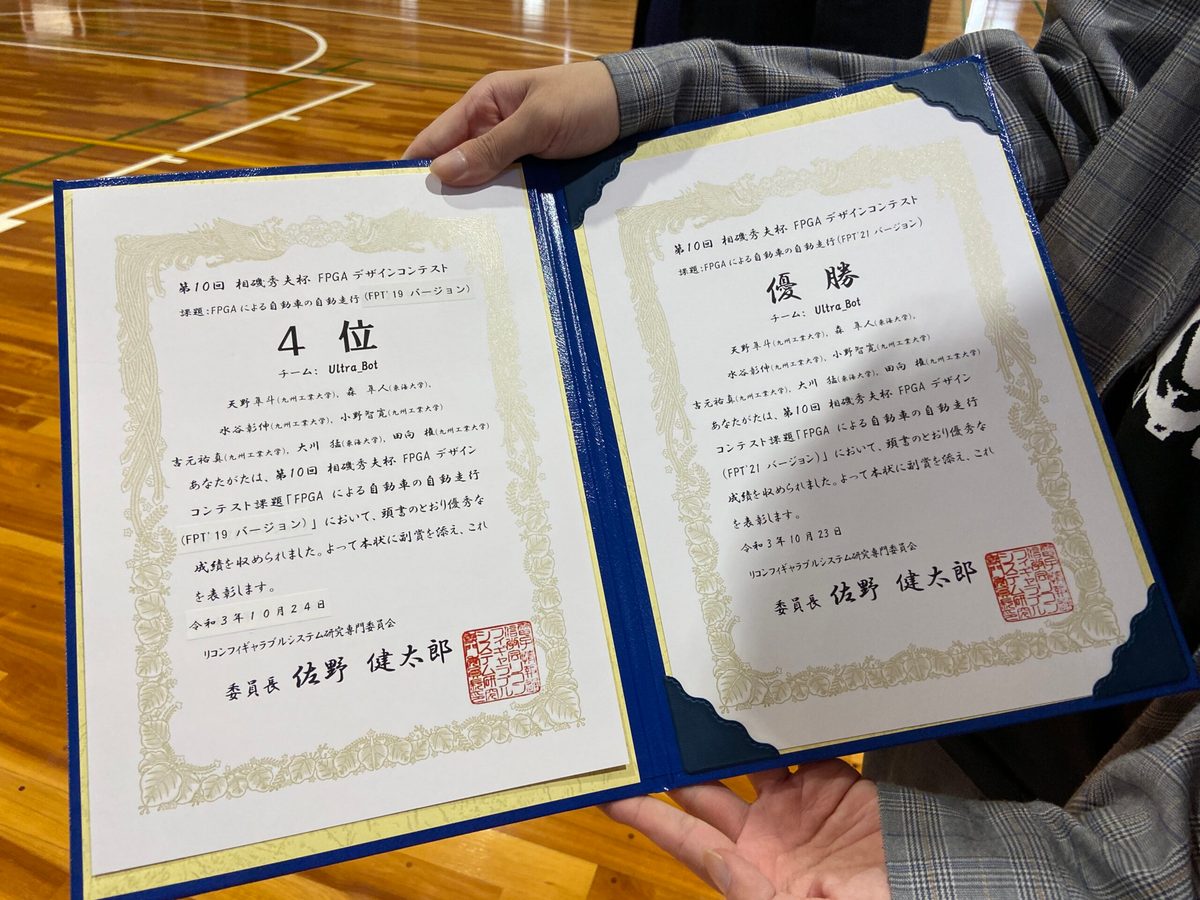 第10回 相磯秀夫杯 FPGA デザインコンテスト
課題:FPGAによる自動車の自動走行(FPT'19 バージョン)
4 位
チーム: Ultra_Bot
天野隼斗(九州工業大学)、森 隼人(東海大学)、
水谷彰伸(九州工業大学)、小野智寛(九州工業大学)
吉元裕真(九州工業大学)、大川 猛(東海大学)、田向 権(九州工業大学)
あなたがたは、第10回 相磯秀夫杯 FPGA デザイン
コンテスト課題「FPGA による自動車の自動走行
(FPT'19 バージョン)」において、頭書のとおり優秀な
成績を収められました。よって本状に副賞を添え、これ
を表彰します。
令和3年10月24日
リコンフィギャラブルシステム研究専門委員会
委員長 佐野 健太郎
第10回 相磯秀夫杯 FPGA デザインコンテスト
課題:FPGAによる自動車の自動走行(FPT'21 バージョン)
優 勝
チーム: Ultra_Bot
天野隼斗(九州工業大学)、森 隼人(東海大学)、
水谷彰伸(九州工業大学)、小野智寛(九州工業大学)
吉元裕真(九州工業大学)、大川 猛(東海大学)、田向 権(九州工業大学)
あなたがたは、第10回 相磯秀夫杯 FPGA デザイン
コンテスト課題「FPGA による自動車の自動走行
(FPT'21 バージョン)」において、頭書のとおり優秀な
成績を収められました。よって本状に副賞を添え、これ
を表彰します。
令和3年10月23日
リコンフィギャラブルシステム研究専門委員会
委員長 佐野 健太郎